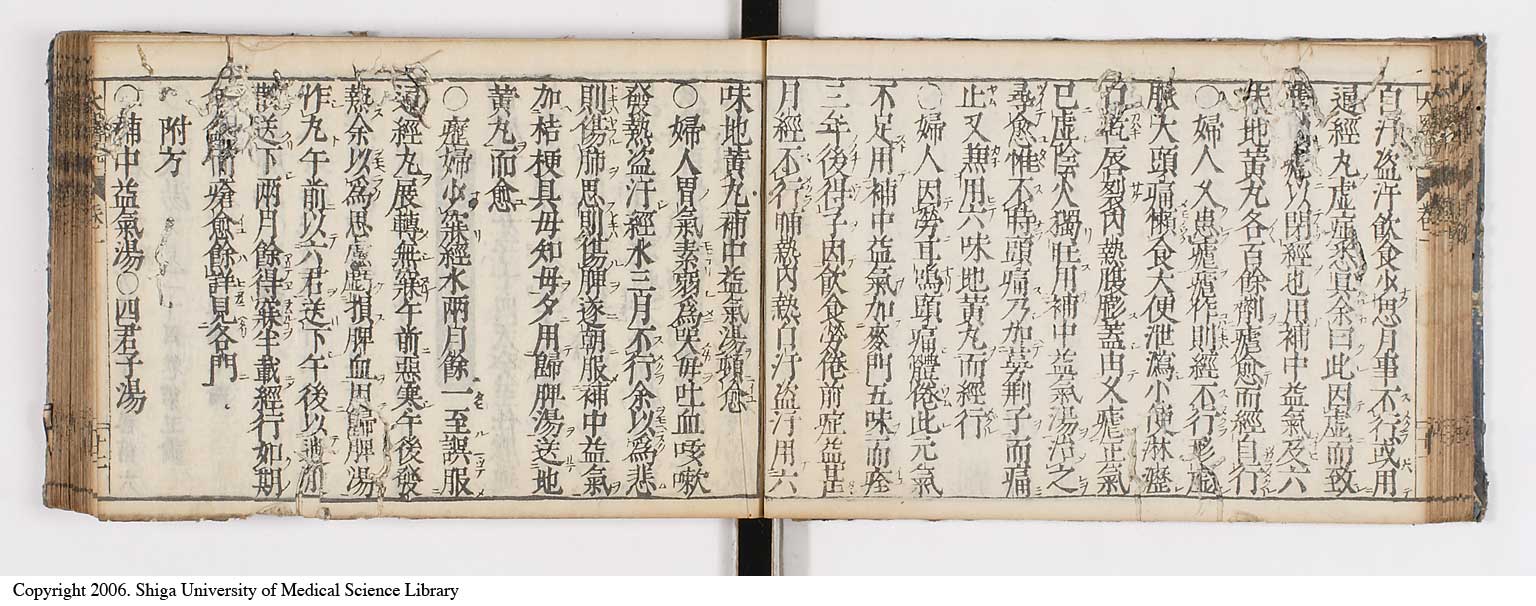 自汗盜汗飲食少思月事不行或用
退經丸虛症悉具余曰此因虛而致
瘧以閉經也用補中益氣及六
味地黃丸各百餘劑瘧愈而經自行
○婦人久患瘧瘧作則經不行形虛
脈大頭痛懶食大便泄瀉小便淋瀝
口乾唇裂內熱腹膨蓋由久瘧正氣
已虛陰火獨旺用補中益氣湯治之
尋愈惟不時頭痛乃加蔓荆子而痛
止又兼用六味地黃丸而經行
○婦人因勞耳鳴頭痛體倦此元氣
不足用補中益氣加麥門五味而痊
三年後得子因飲食勞倦前症益甚
月經不行晡熱內熱自汗盜汗用六
味地黃丸補中益氣湯頓愈
○婦人胃氣素弱為哭母吐血咳嗽
發熱盜汗經水三月不行余以為悲
則傷肺思則傷脾遂朝服補中益氣
加桔梗貝母知母夕用歸脾湯送地
黃丸而愈
○産婦少寐經水兩月餘一至誤服
通經丸展轉無寐午前惡寒午後發
熱余以為思慮虧損脾血因歸脾湯
作丸午前以六君送下午後以逍遙
散送下兩月餘得寐半載經行如期
年餘而瘡愈餘詳見各門
附方
○補中益氣湯○四君子湯
Copyright 2006. Shiga University of Medical Science Library